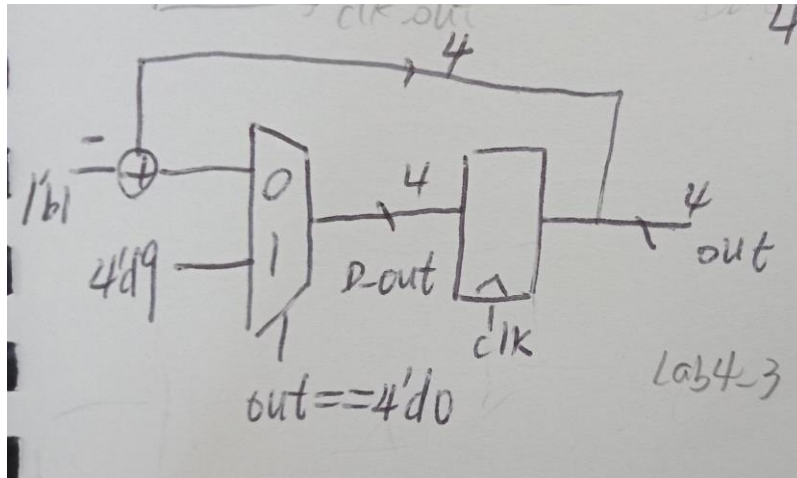 clk_out
4
4
-
+
1'b1
0
1
4'd9
4
D_out
clk
4
out
out==4'd0
Lab4_3